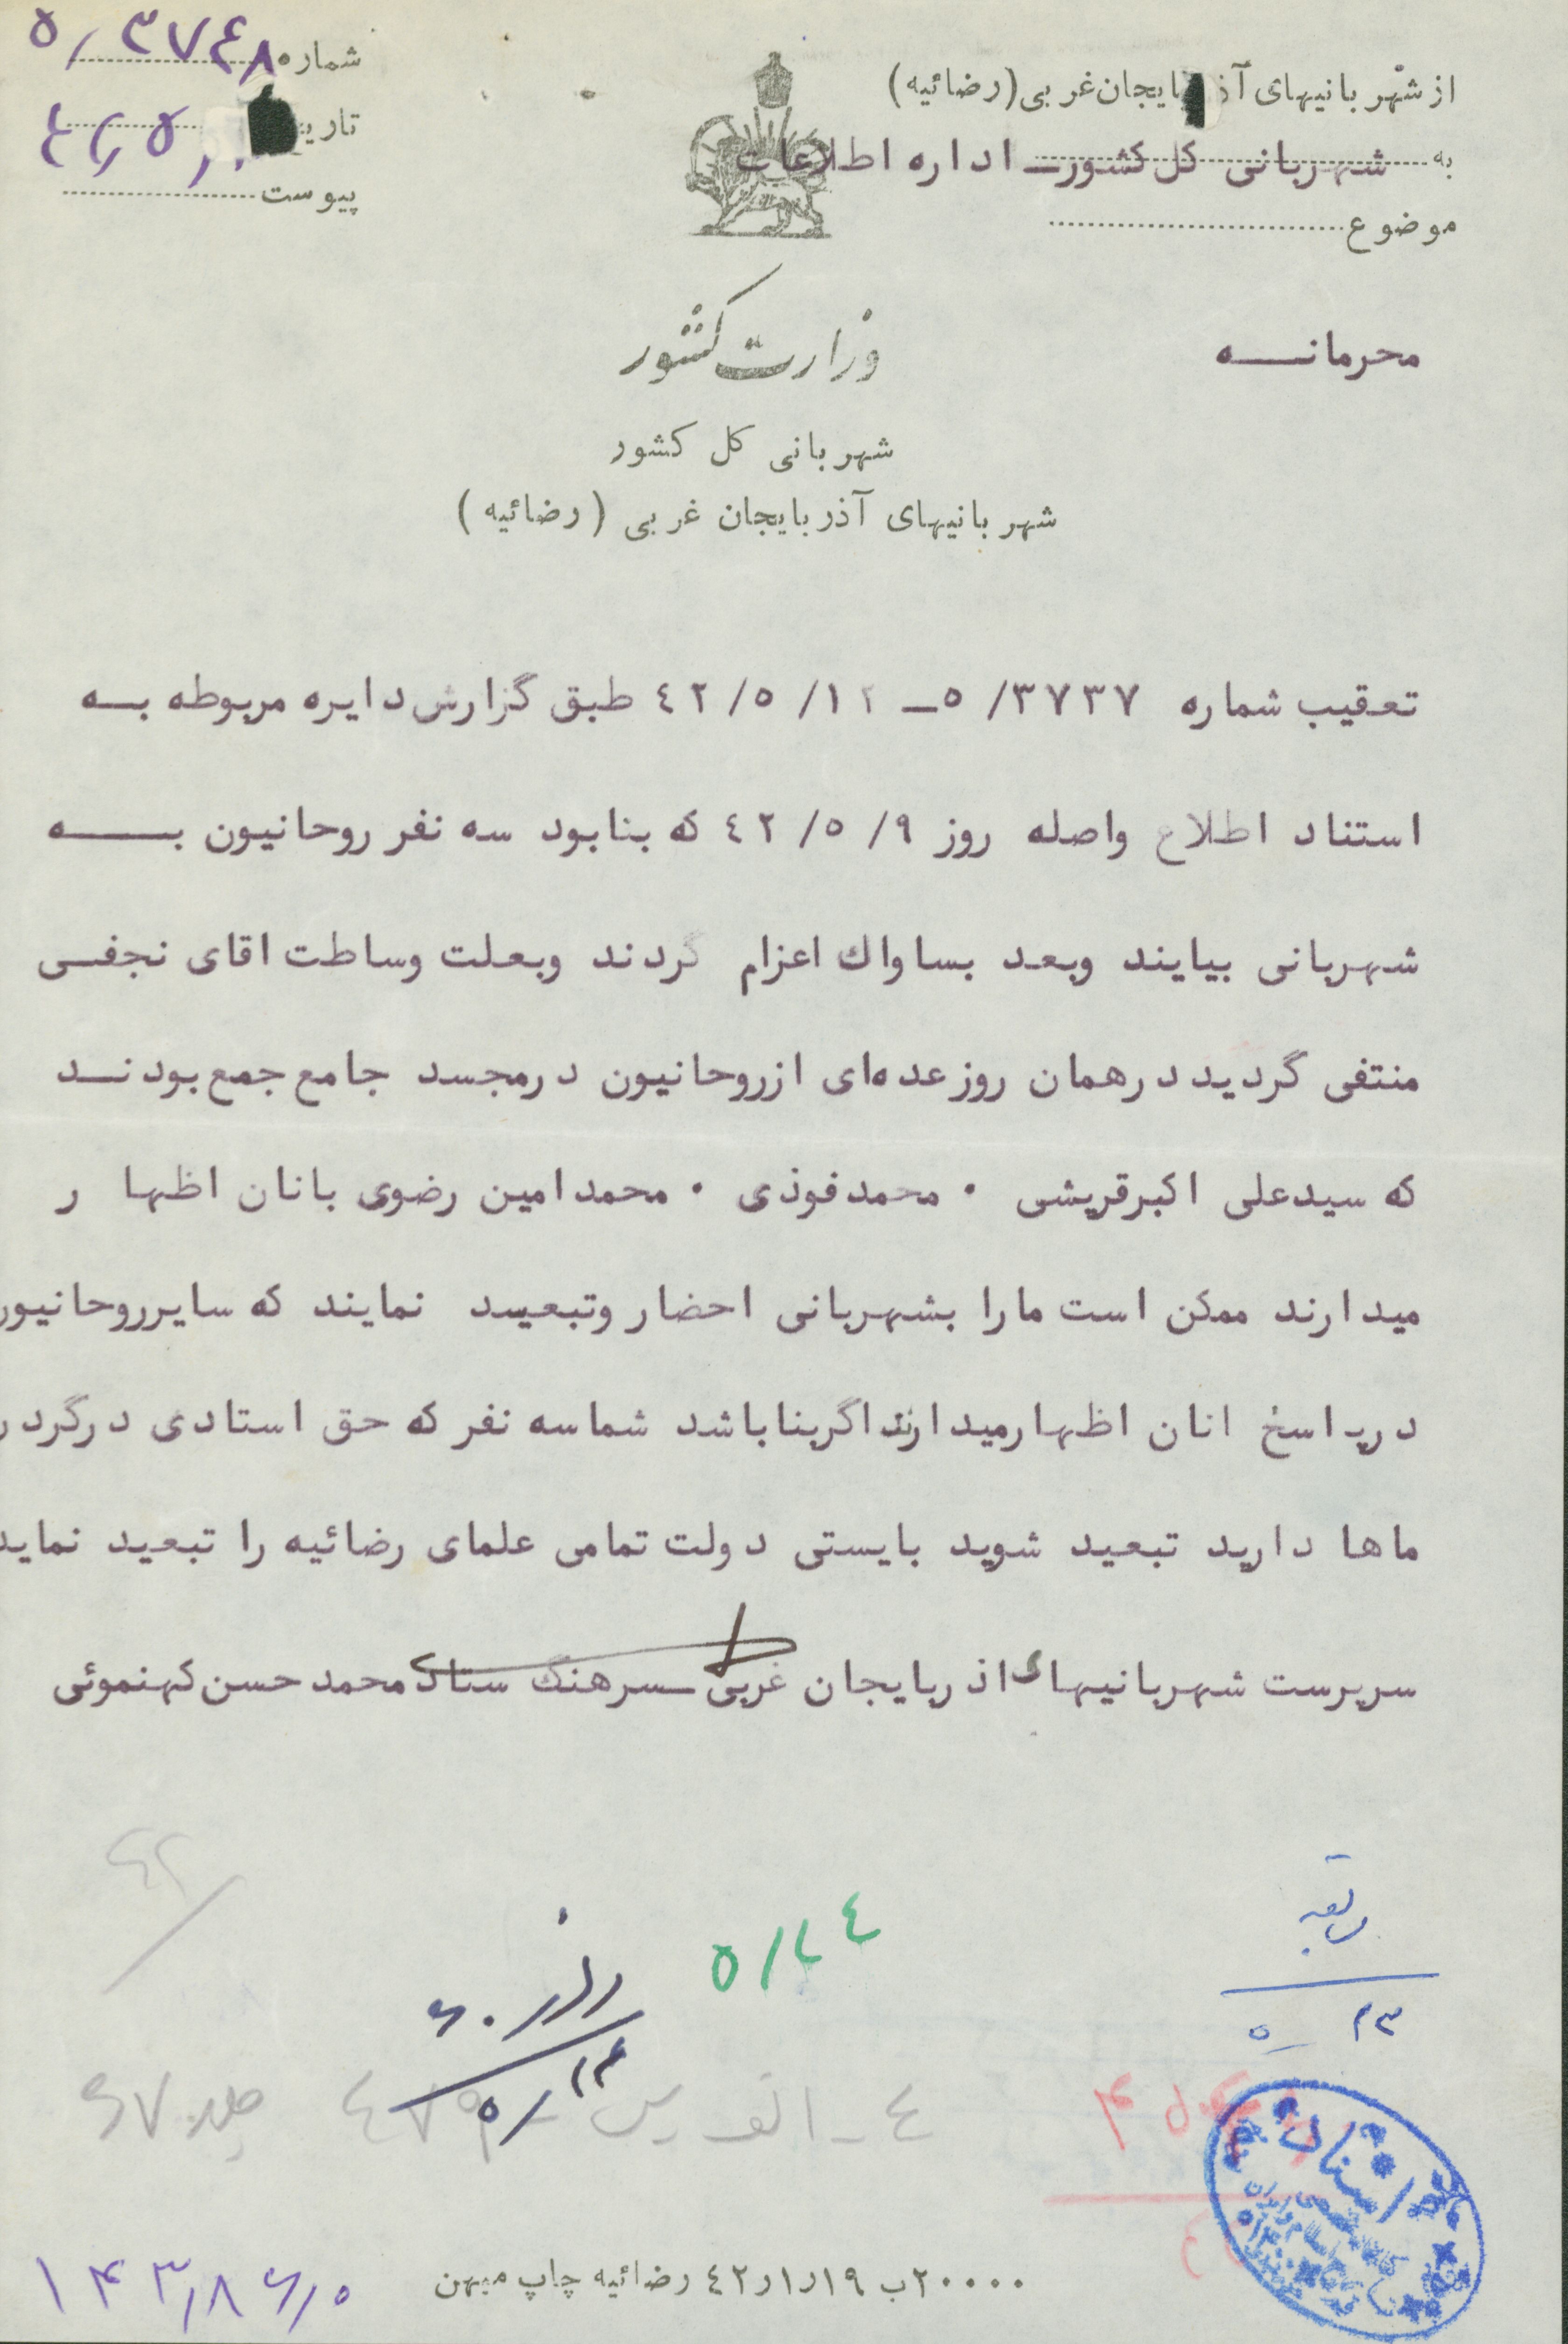 از شهربانیهای آذربایجان غربی (رضائیه)
به شهربانی کل کشور ـ اداره اطلاعات
موضوع
شماره ۵/۳۷٤۸
تاریخ
پیوست
محرمانـــه
وزارت کشور
شهربانی کل کشور
شهربانیهای آذربایجان غربی (رضائیه)
تعقیب شماره ۳۷۳۷/ ۵ ـ ۱۲/ ۵/ ٤۲ طبق گزارش دایره مربوطه بــه
استناد اطلاع واصله روز ۹/ ۵/ ٤۲ که بنابود سه نفر روحانیون بـــــه
شهربانی بیایند وبعد بساواك اعزام گردند وبعلت وساطت اقای نجفــی
منتفی گردید درهمان روز عده‌ای ازروحانیون درمجسد جامع جمع بودنــد
که سیدعلی اکبرقریشی ۰ محمدفوذی ۰ محمدامین رضوی بانان اظها ر
میدارند ممکن است مارا بشهربانی احضار وتبعیسد نمایند که سایرروحانیور
درپاسخ انان اظهارمیدارند اگربناباشد شماسه نفر که حق استادی درگردر
ماها دارید تبعید شوید بایستی دولت تمامی علمای رضائیه را تبعید نماید
سرپرست شهربانیهای اذربایجان غربی ــ سرهنگ ستاد محمدحسن کهنموئی
٤۲
۱۳
۵
جلد
۲۰۰۰۰ب ۱۹ر۱ر٤۲ رضائیه چاپ میهن